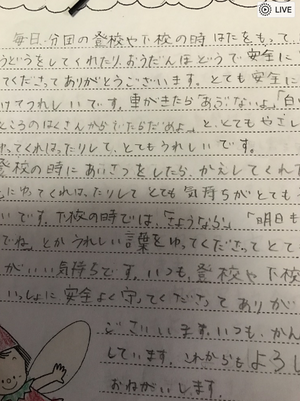 LIVE
毎日、分団の登校や下校の時はたをもって、
うどうをしてくれたり、おうだんほどうで安全に
てくださってありがとうございます。とても安全に
けてうれしいです。車がきたら「あぶないよ。」「白い
ところのはくせんからでたらだめよ。」と、とてもやさし
ってくれはったりして、とてもうれしいです。
登校の時にあいさつをしたら、かえしてくれて
にゆてくれはったりしてとても気持ちがとても
いです。下校の時では、「さようなら」、「明日も
でね」とかうれしい言葉をゆってくださってとて
がいい気持ちです。いつも、登校や下校
いっしょに安全よく守ってくださってありが
ございます。いつも、かん
しています。これからもよろし
おねがいします。